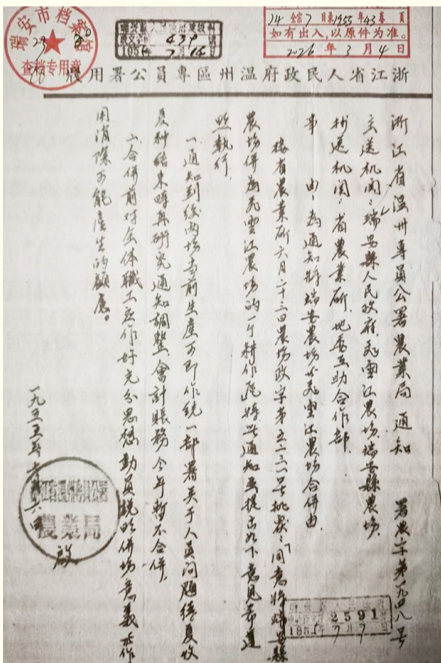 瑞安市档案馆
查档专用章
24全宗7目录1955年43卷 页
如有出入,以原件为准。
2026年3月4日
浙江省人民政府温州區專員公署用
浙江省温州專員公署農業局通知
署農字第九四八号
主送机関:瑞安縣人民政府飛雲江農場瑞安縣農場.
抄送机関:省農業所.地委互助合作部.
事 由:為通知將瑞安農場与飛雲江農場合併由
根省農業所六月二十六日農場政字第五二六二号批露:同意將瑞安縣
農場併為飛雲江農場的一个耕作區將此通知並提出如下意見希遵
照執行.
一.通知到後两場当前生産可即作統一部署.关于人員问題待夏收
夏种結束時再研究通知調整,會計賬務今年暫不合併.
二.合併前对全体職工应作好充分思想動員說明併場意義其作
用消除可能產生的顧慮.
一九五五年七月六日
浙江省温州專員公署
農業局
啟
2591